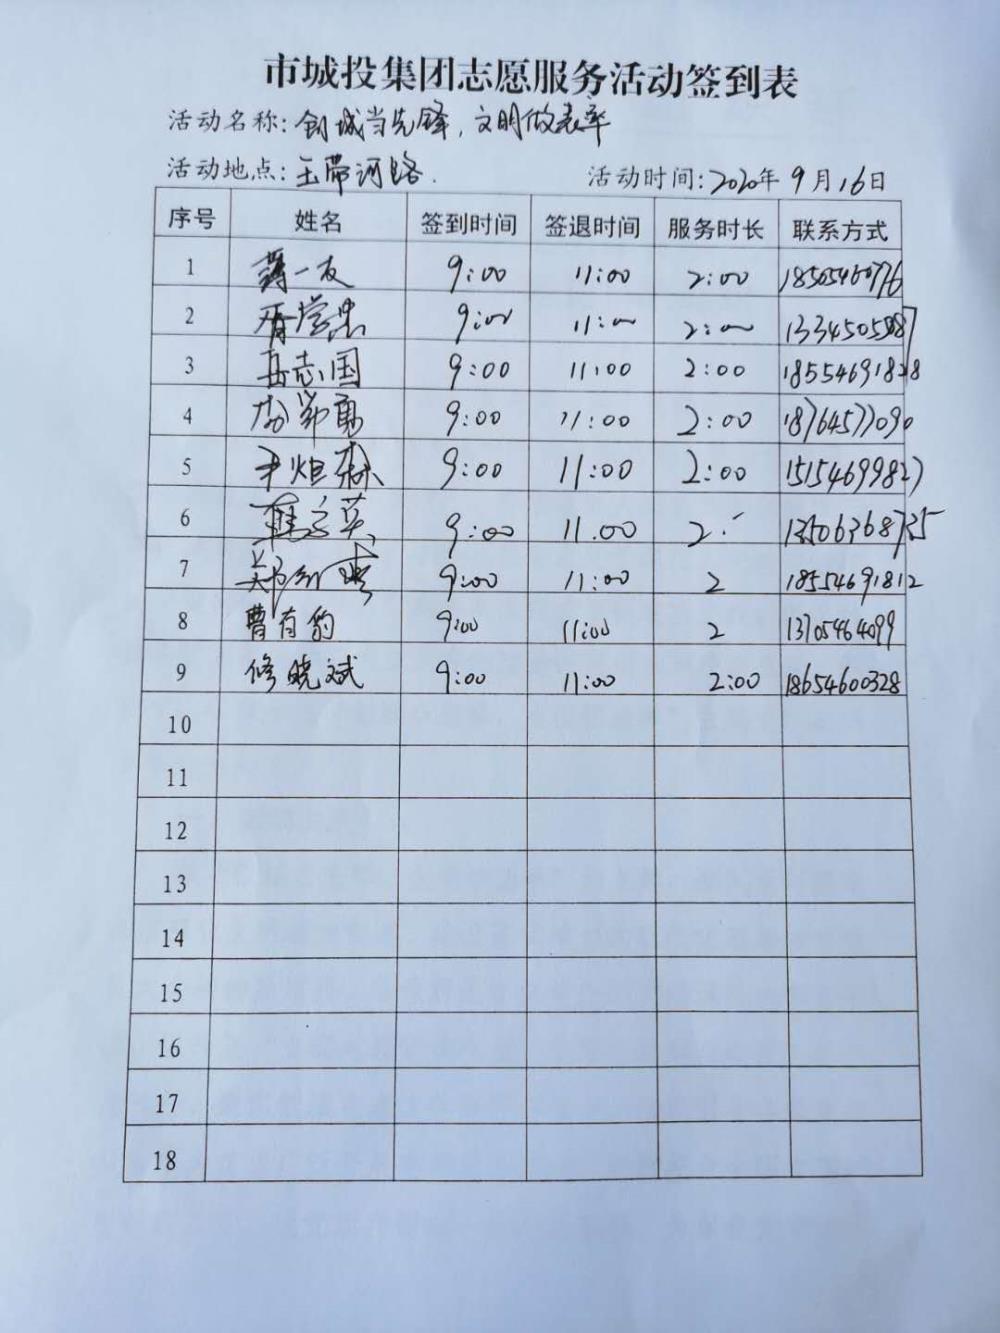 市城投集团志愿服务活动签到表
活动名称:创城当先锋,文明做表率
活动地点:玉带河路.
活动时间:2020年9月16日
序号 姓名 签到时间 签退时间 服务时长 联系方式
1 一友 9:00 11:00 2:00 18505460776
2 学忠 9:00 11:00 2:00 13345055087
3 岳志国 9:00 11:00 2:00 18554691828
4 9:00 11:00 2:00 18764577090
5 尹炬森 9:00 11:00 2:00 15154699827
6 英 9:00 11.00 2: 13506368735
7 郑 9:00 11:00 2 18554691812
8 曹有豹 9:00 11:00 2 13705464099
9 修晓斌 9:00 11:00 2:00 18654600328
10
11
12
13
14
15
16
17
18